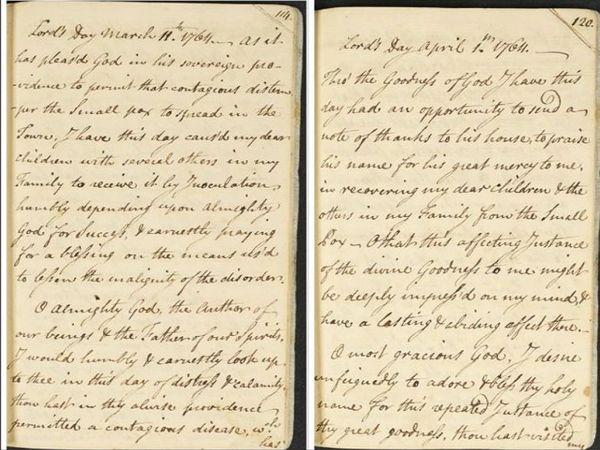 114.
Lord's Day March 11.th 1764. — As it
has pleas'd God in his sovereign pro-
-vidence to permit that contagious distem
-per the Small pox to spread in the
Town, I have this day caus'd my dear
children with several others in my
Family to receive it by Inoculation,
humbly depending upon Almighty
God for Success, & earnestly praying
for a blessing on the means us'd
to lessen the malignity of the disorder.
O Almighty God, the Author of
our beings & the Father of our Spirits,
I would humbly & earnestly look up
to thee in this day of distress & calamity,
thou hast in thy alwise providence
permitted a contagious disease, wch
has
120.
Lord's Day April 1.st 1764. —
Thro' the Goodness of God I have this
day had an opportunity to send a
note of thanks to his house, to praise
his name for his great mercy to me,
in recovering my dear Children & the
others in my Family from the Small
Pox — O that this affecting Instance
of the divine Goodness to me might
be deeply impress'd on my mind, &
have a lasting & abiding effect there. —
O most gracious God, I desire
unfeignedly to adore & bless thy holy
name for this repeated Instance of
thy great goodness, thou hast visited
my